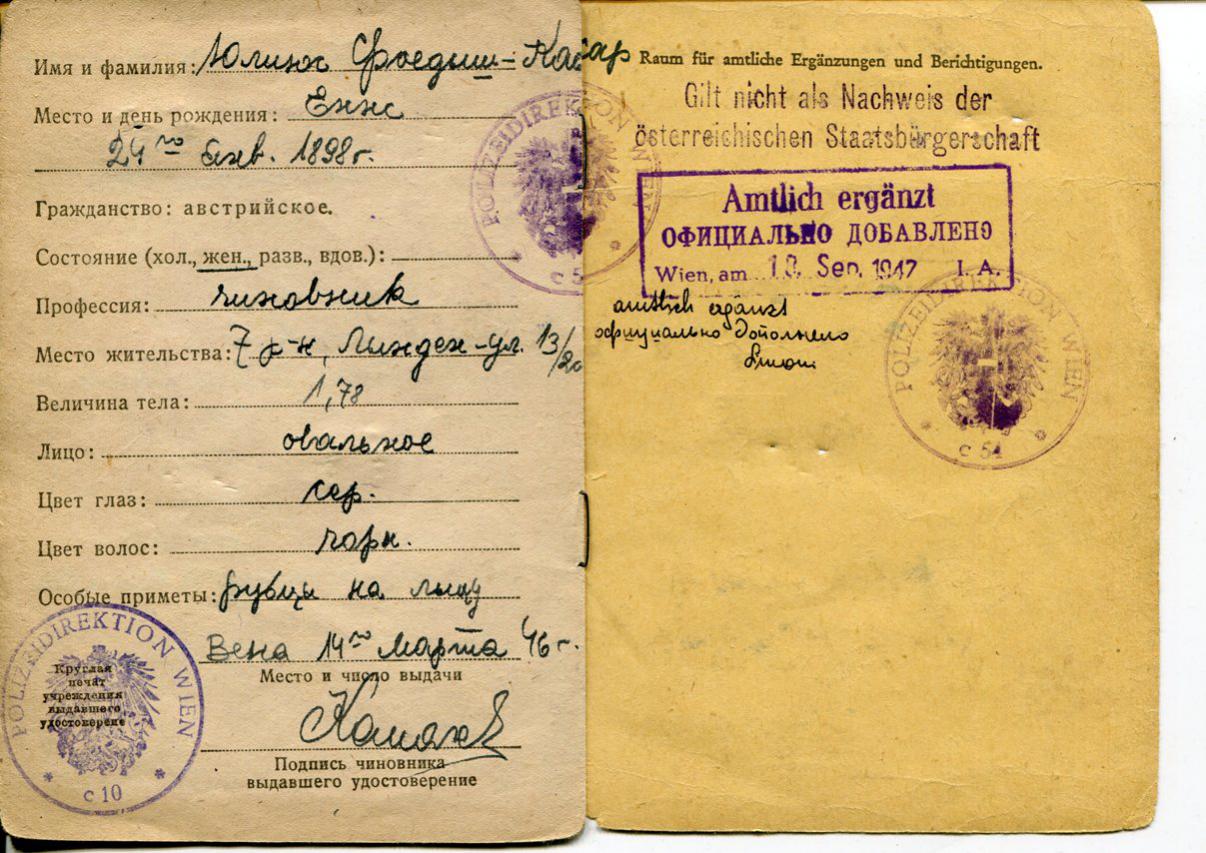 Имя и фамилия: Юлиус
Место и день рождения:
24го Янв. 1898г.
Гражданство: австрийское.
Состояние (хол., жен., разв., вдов.):
Профессия: чиновник
Место жительства: 7 р-н, Линден-ул. 13/20
Величина тела: 1,78
Лицо: овальное
Цвет глаз: сер.
Цвет волос: чорн.
Особые приметы: рубцы на лицу
Вена 14го марта 46 г.
Место и число выдачи
Подпись чиновника
выдавшего удостоверение
POLIZEIDIREKTION WIEN
Круглая
печат
учреждения
выдавшего
удостоверене
с 10
POLIZEIDIREKTION WIEN
Raum für amtliche Ergänzungen und Berichtigungen.
Gilt nicht als Nachweis der
österreichischen Staatsbürgerschaft
Amtlich ergänzt
ОФИЦИАЛЬНО ДОБАВЛЕНО
Wien, am 10. Sep. 1947 I. A.
amtlich ergänzt
официально дополнено
POLIZEIDIREKTION WIEN
с 51